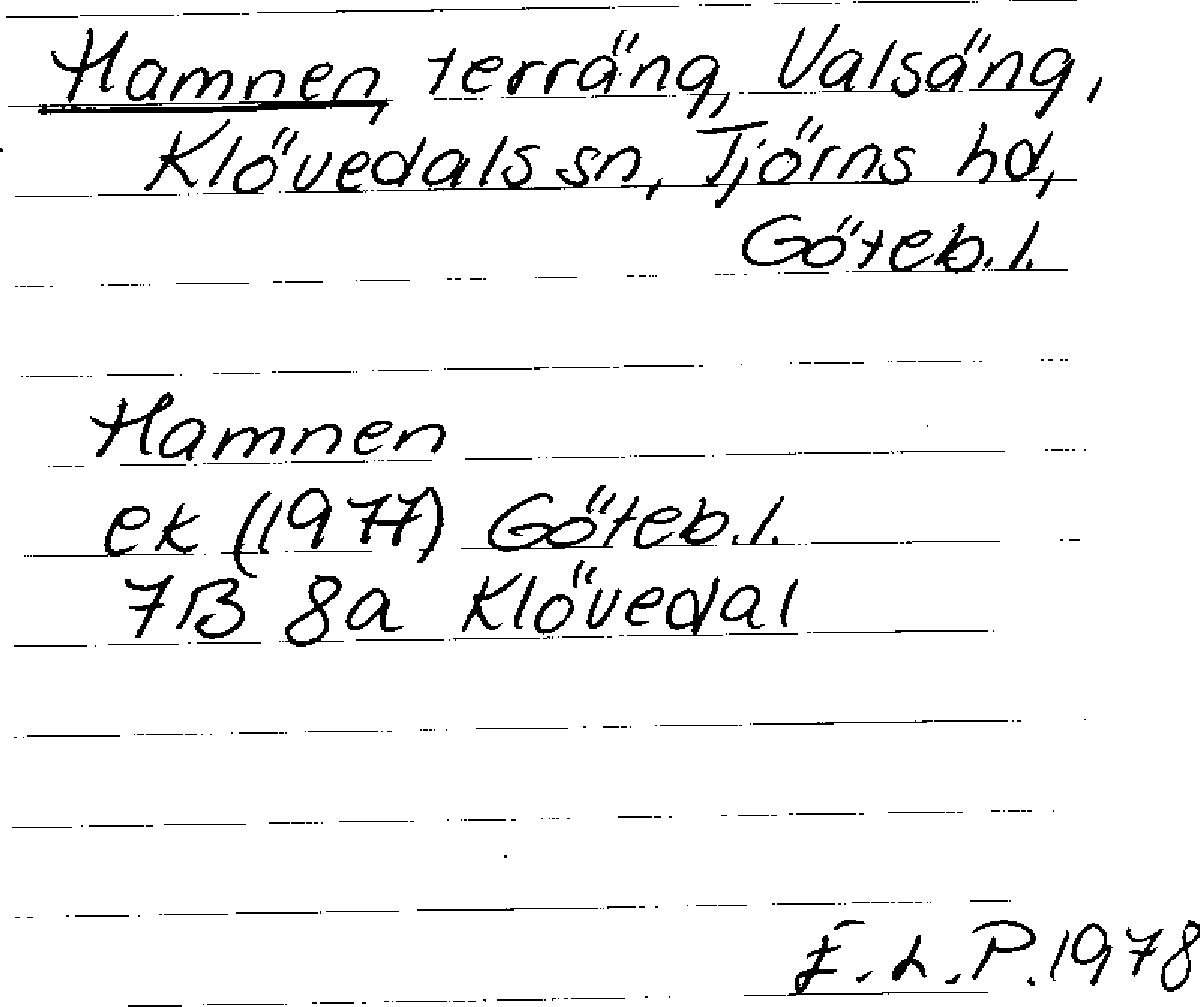 Hamnen, terräng, Valsäng,
Klövedals sn, Tjörns hd,
Göteb. l.
Hamnen
ek (1977) Göteb. l.
7B 8a Klövedal
E. L. P. 1978